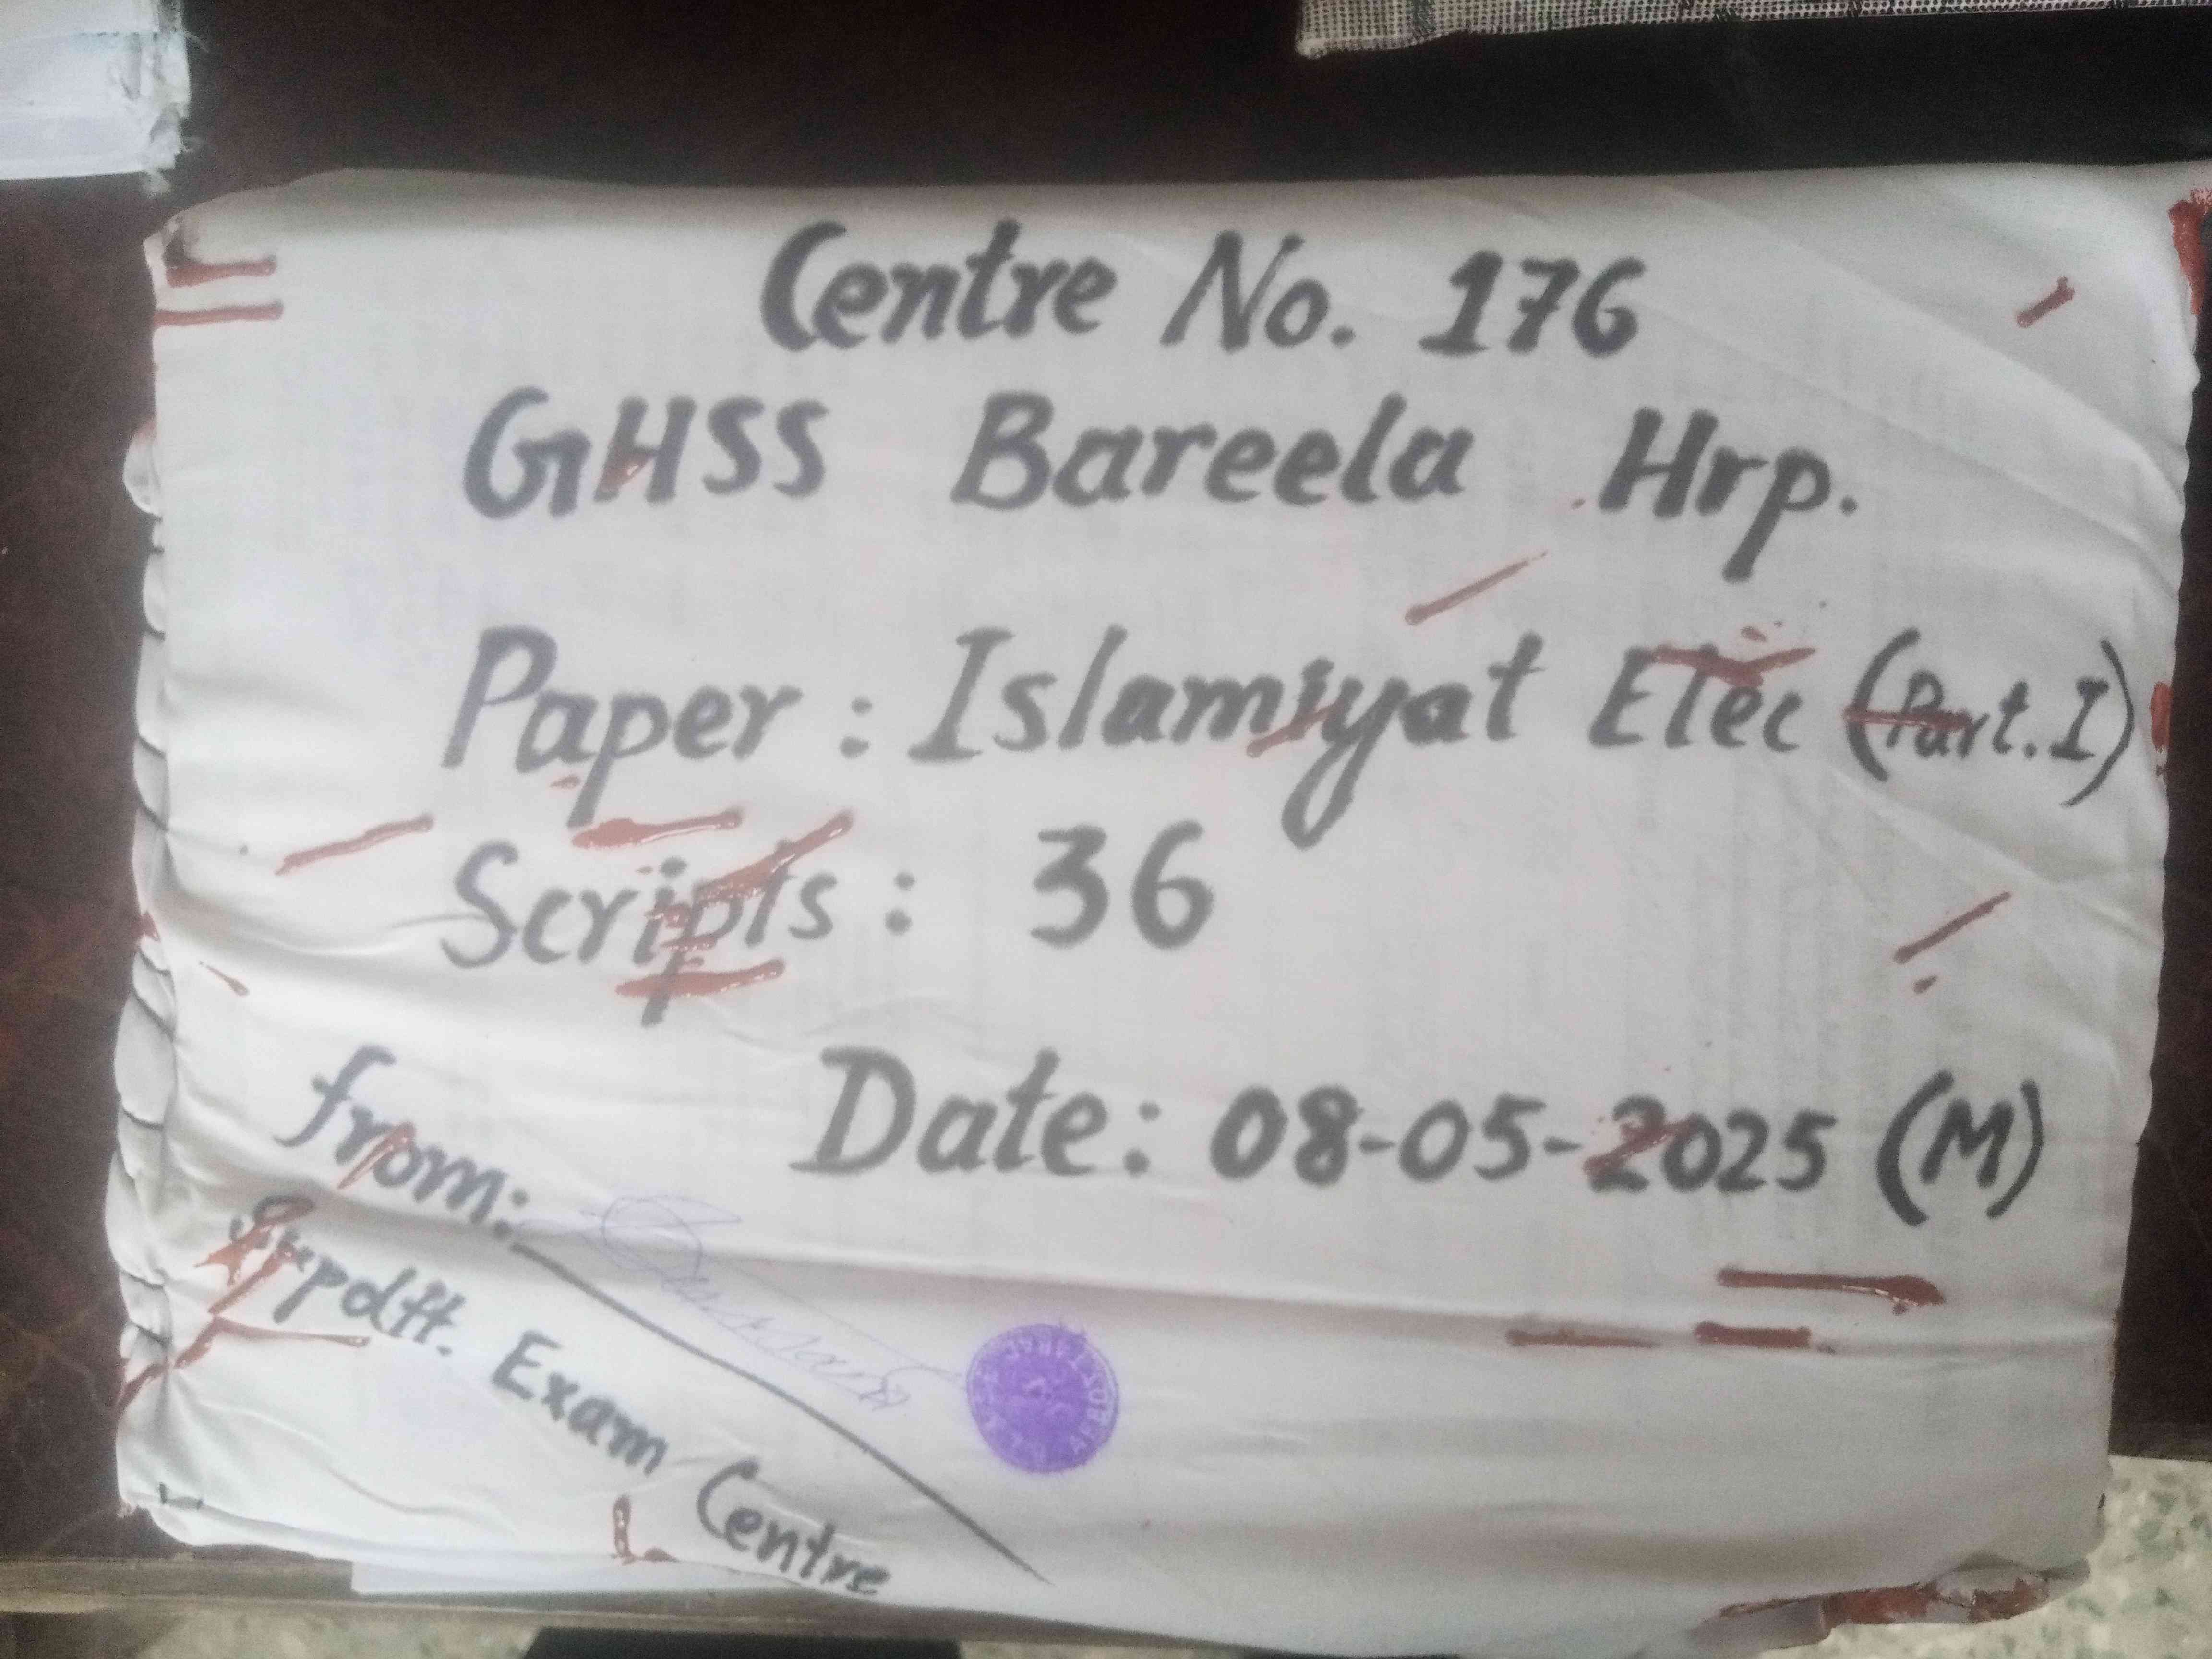 Centre No. 176
GHSS Bareela Hrp.
Paper : Islamiyat Elec (Part. I)
Scripts : 36
Date: 08-05-2025 (M)
from:
Supdtt. Exam Centre